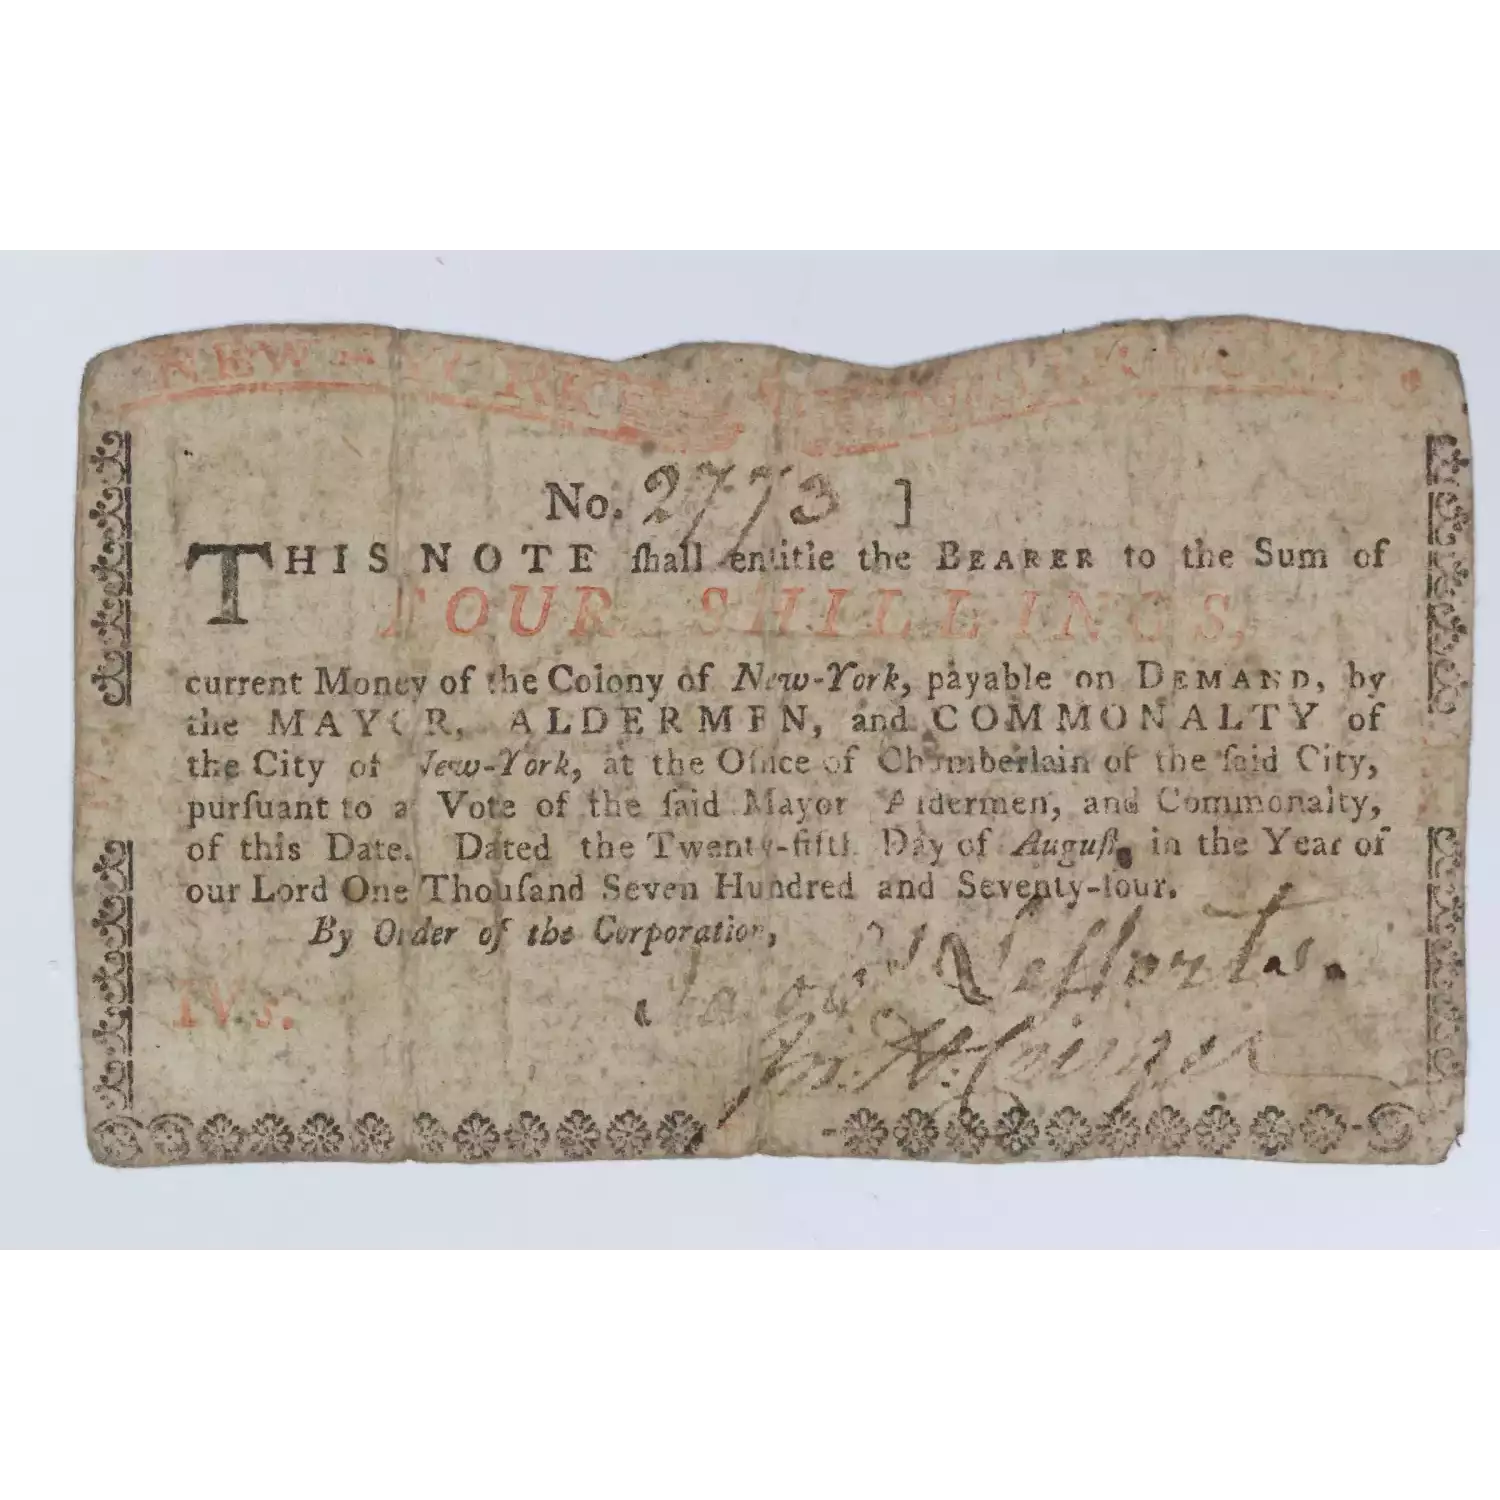 NEW-YORK WATER WORKS
No. 2773 ]
THIS NOTE ſhall entitle the BEARER to the Sum of
FOUR SHILLINGS,
current Money of the Colony of New-York, payable on DEMAND, by
the MAYOR, ALDERMEN, and COMMONALTY of
the City of New-York, at the Office of Chamberlain of the ſaid City,
purſuant to a Vote of the ſaid Mayor Aldermen, and Commonalty,
of this Date. Dated the Twenty-fifth Day of Auguſt, in the Year of
our Lord One Thouſand Seven Hundred and Seventy-four.
By Order of the Corporation,
IV.s.
Jn. H. Cruger